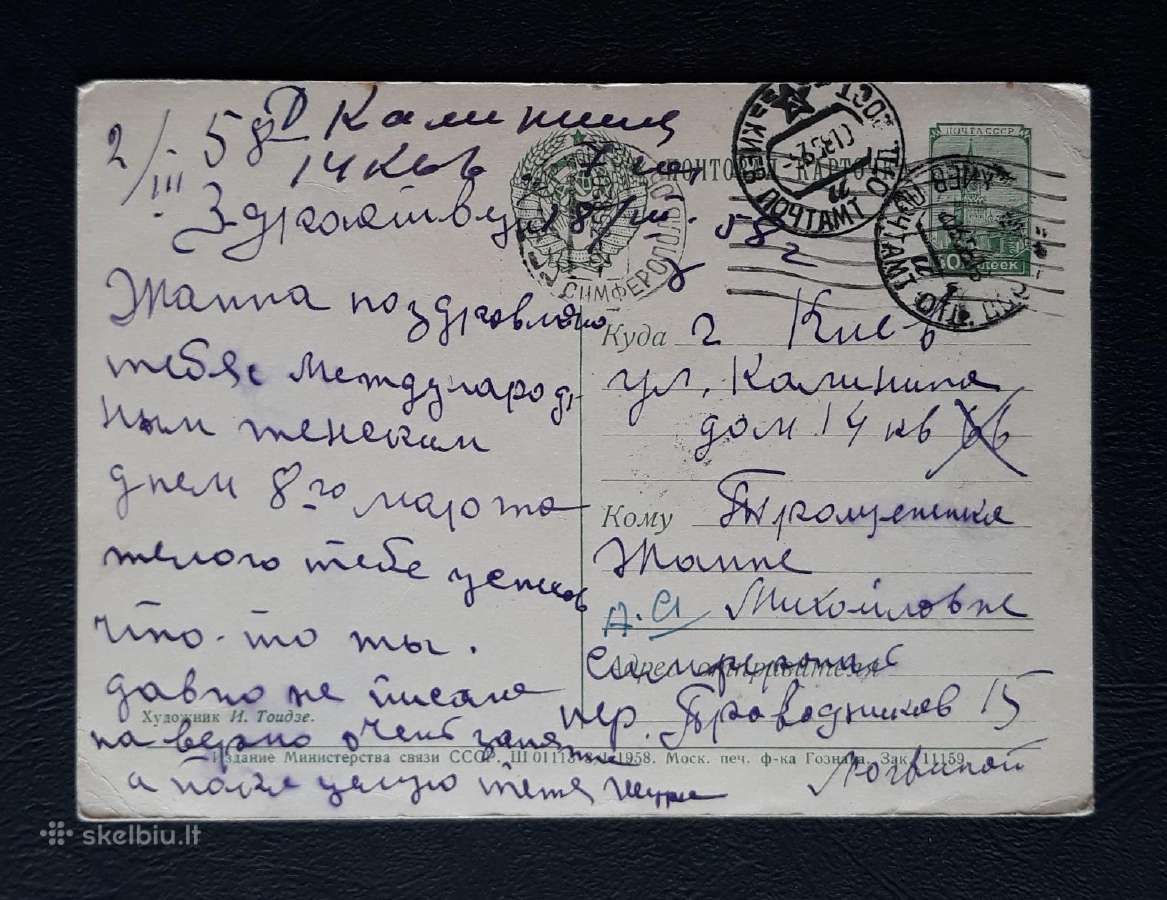 2/III 5
14 кв
Здравствуй 8/III. 58 г
Жанна поздравляю
тебя с Международ
ным женским
днем 8го марта
желаю тебе успехов
что-то ты.
давно не писала
наверно очень занята
а пока целую тетя
ПОЧТОВАЯ КАРТОЧКА
ПОЧТА СССР
40 копеек
КИЕВ ПОЧТАМТ
СИМФЕРОПОЛЬ
КИЕВ
ПОЧТАМТ
Куда г Киев
ул. Калинина
дом 14 кв 66
Кому
Жанне
А.Я Михайловне
Адрес отправителя
Симферополь
пер. Проводников 15
Логвиной
Художник И. Тоидзе.
Издание Министерства связи СССР. 1958. Моск. печ. ф-ка Гознака. Зак. 11159.
skelbiu.lt